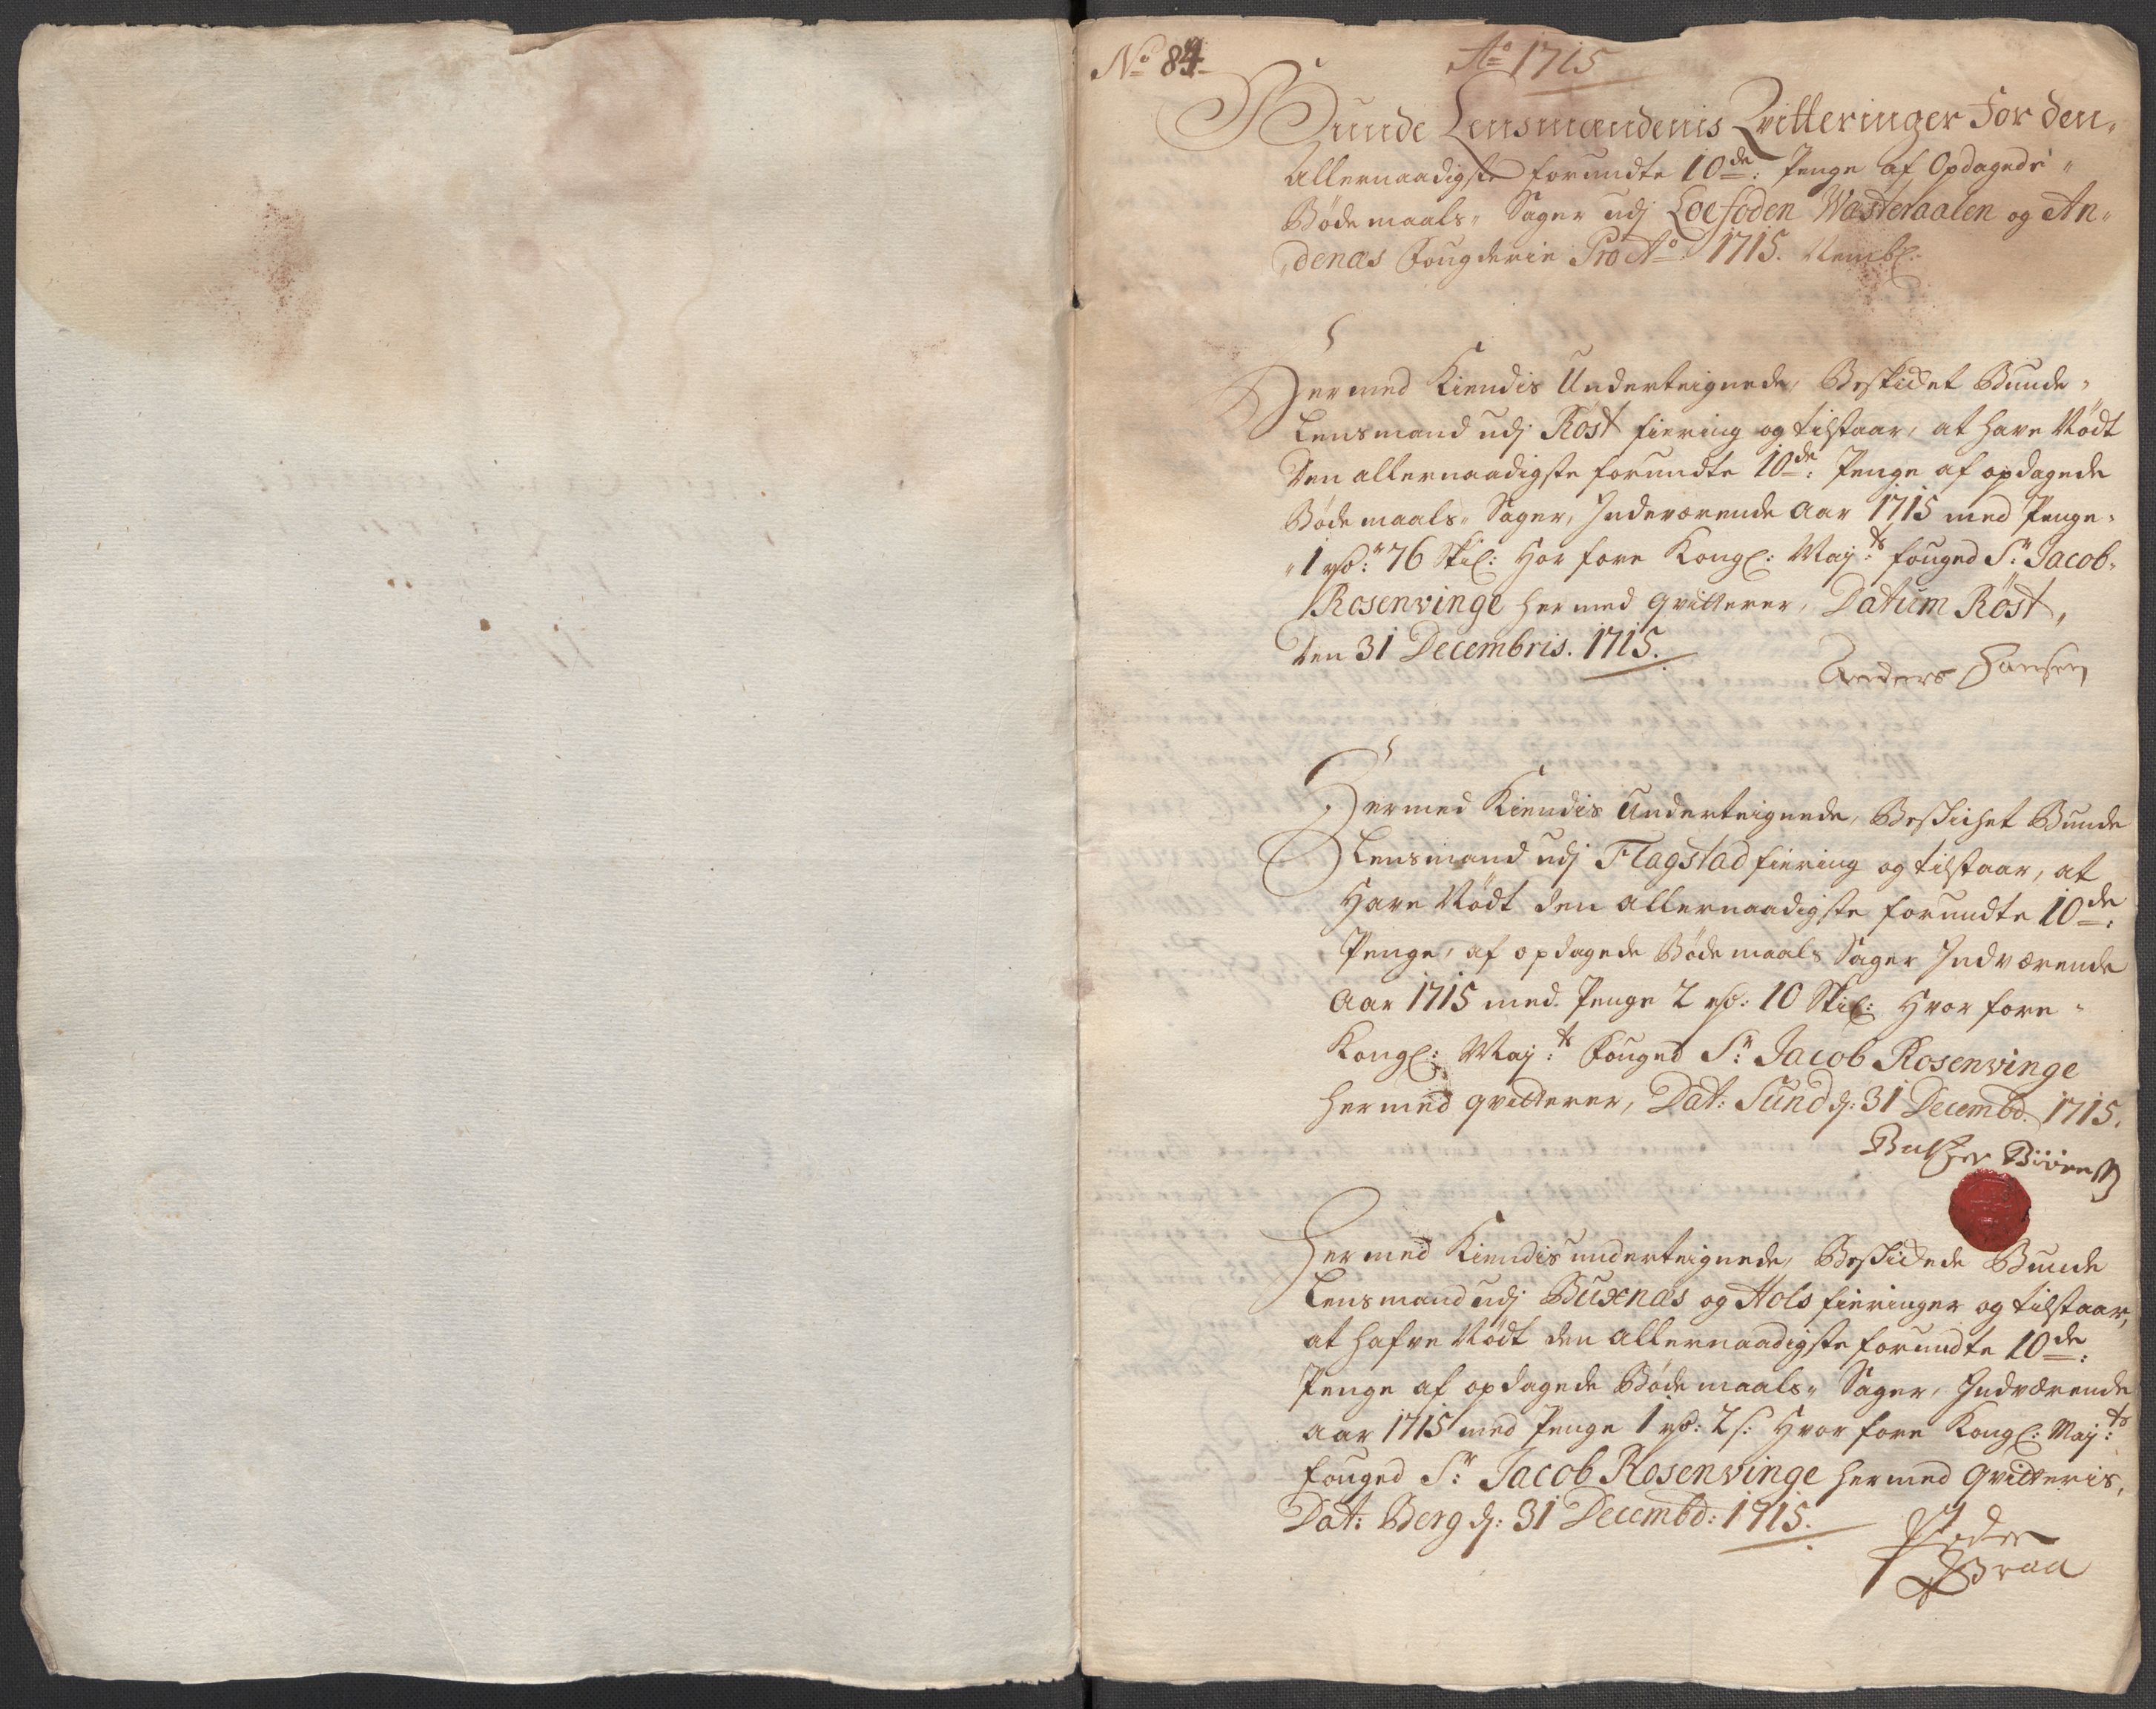 No 84
Ao 1715
Bunde Lensmændenis Qvitteringer for den
Allernaadigste forundte 10de: Penge af Opdagede
Bödemaals Sager udj Loefoden Wasteraalen og An-
denæs Fougderie Pro Ao 1715. Nembl:
Hermed Kiendis Underteignede, Beskicket Bunde
Lensmand udj Röst fiering og tilstaar, at have Nödt
den allernaadigste forundte 10de: Penge af opdagede
Bödemaals Sager, Indeværende Aar 1715 med Penge
1 rdr: 76 Skil: Hor fore Kongl: Maÿ:ts fouged Sr: Jacob
Rosenvinge hermed qvitterer, Datum Röst,
den 31 Decembris. 1715.
Anders Hansen
Hermed Kiendis Underteignede, Beskichet Bunde
Lensmand udj Flagstad fiering og tilstaar, at
Have Nödt den allernaadigste forundte 10de:
Penge, af opdagede Bödemaals Sager Indværende
Aar 1715 med Penge 2 rdr: 10 Skil: Hvor fore
Kongl: Maÿ:ts Fouged Sr: Jacob Rosenvinge
hermed qvitterer, Dat: Sund d: 31 Decembd. 1715.
Baltzer
Hermed Kiendis underteignede, Beskickede Bunde
Lensmand udj Buxnæs og Hols fieringer og tilstaar,
at hafve Nödt den allernaadigste forundte 10de:
Penge af opdagede Bödemaals Sager, Indværende
Aar 1715 med Penge 1 rdr: 2 s: Hvor fore Kongl: Maÿ:ts
fouged Sr: Jacob Rosenvinge hermed qvitteris,
Dat: Berg d: 31 Decembd: 1715.
Peder
Braa